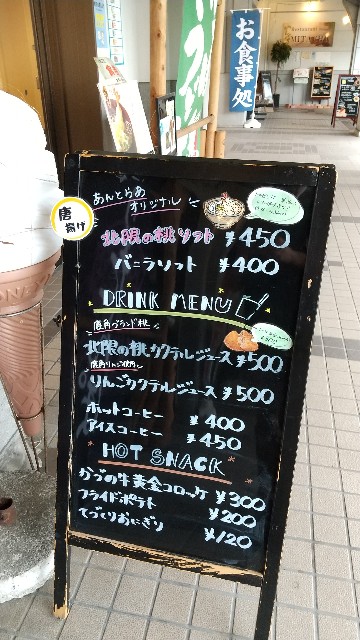 お食事処
唐揚げ
あんとらあ
オリジナル
北限の桃ソフト ¥450
バニラソフト ¥400
DRINK MENU
鹿角ブランド桃
北限の桃カクテルジュース ¥500
鹿角りんご使用
りんごカクテルジュース ¥500
ホットコーヒー ¥400
アイスコーヒー ¥450
HOT SNACK
かづの牛黄金コロッケ ¥300
フライドポテト ¥200
てづくりおにぎり ¥120